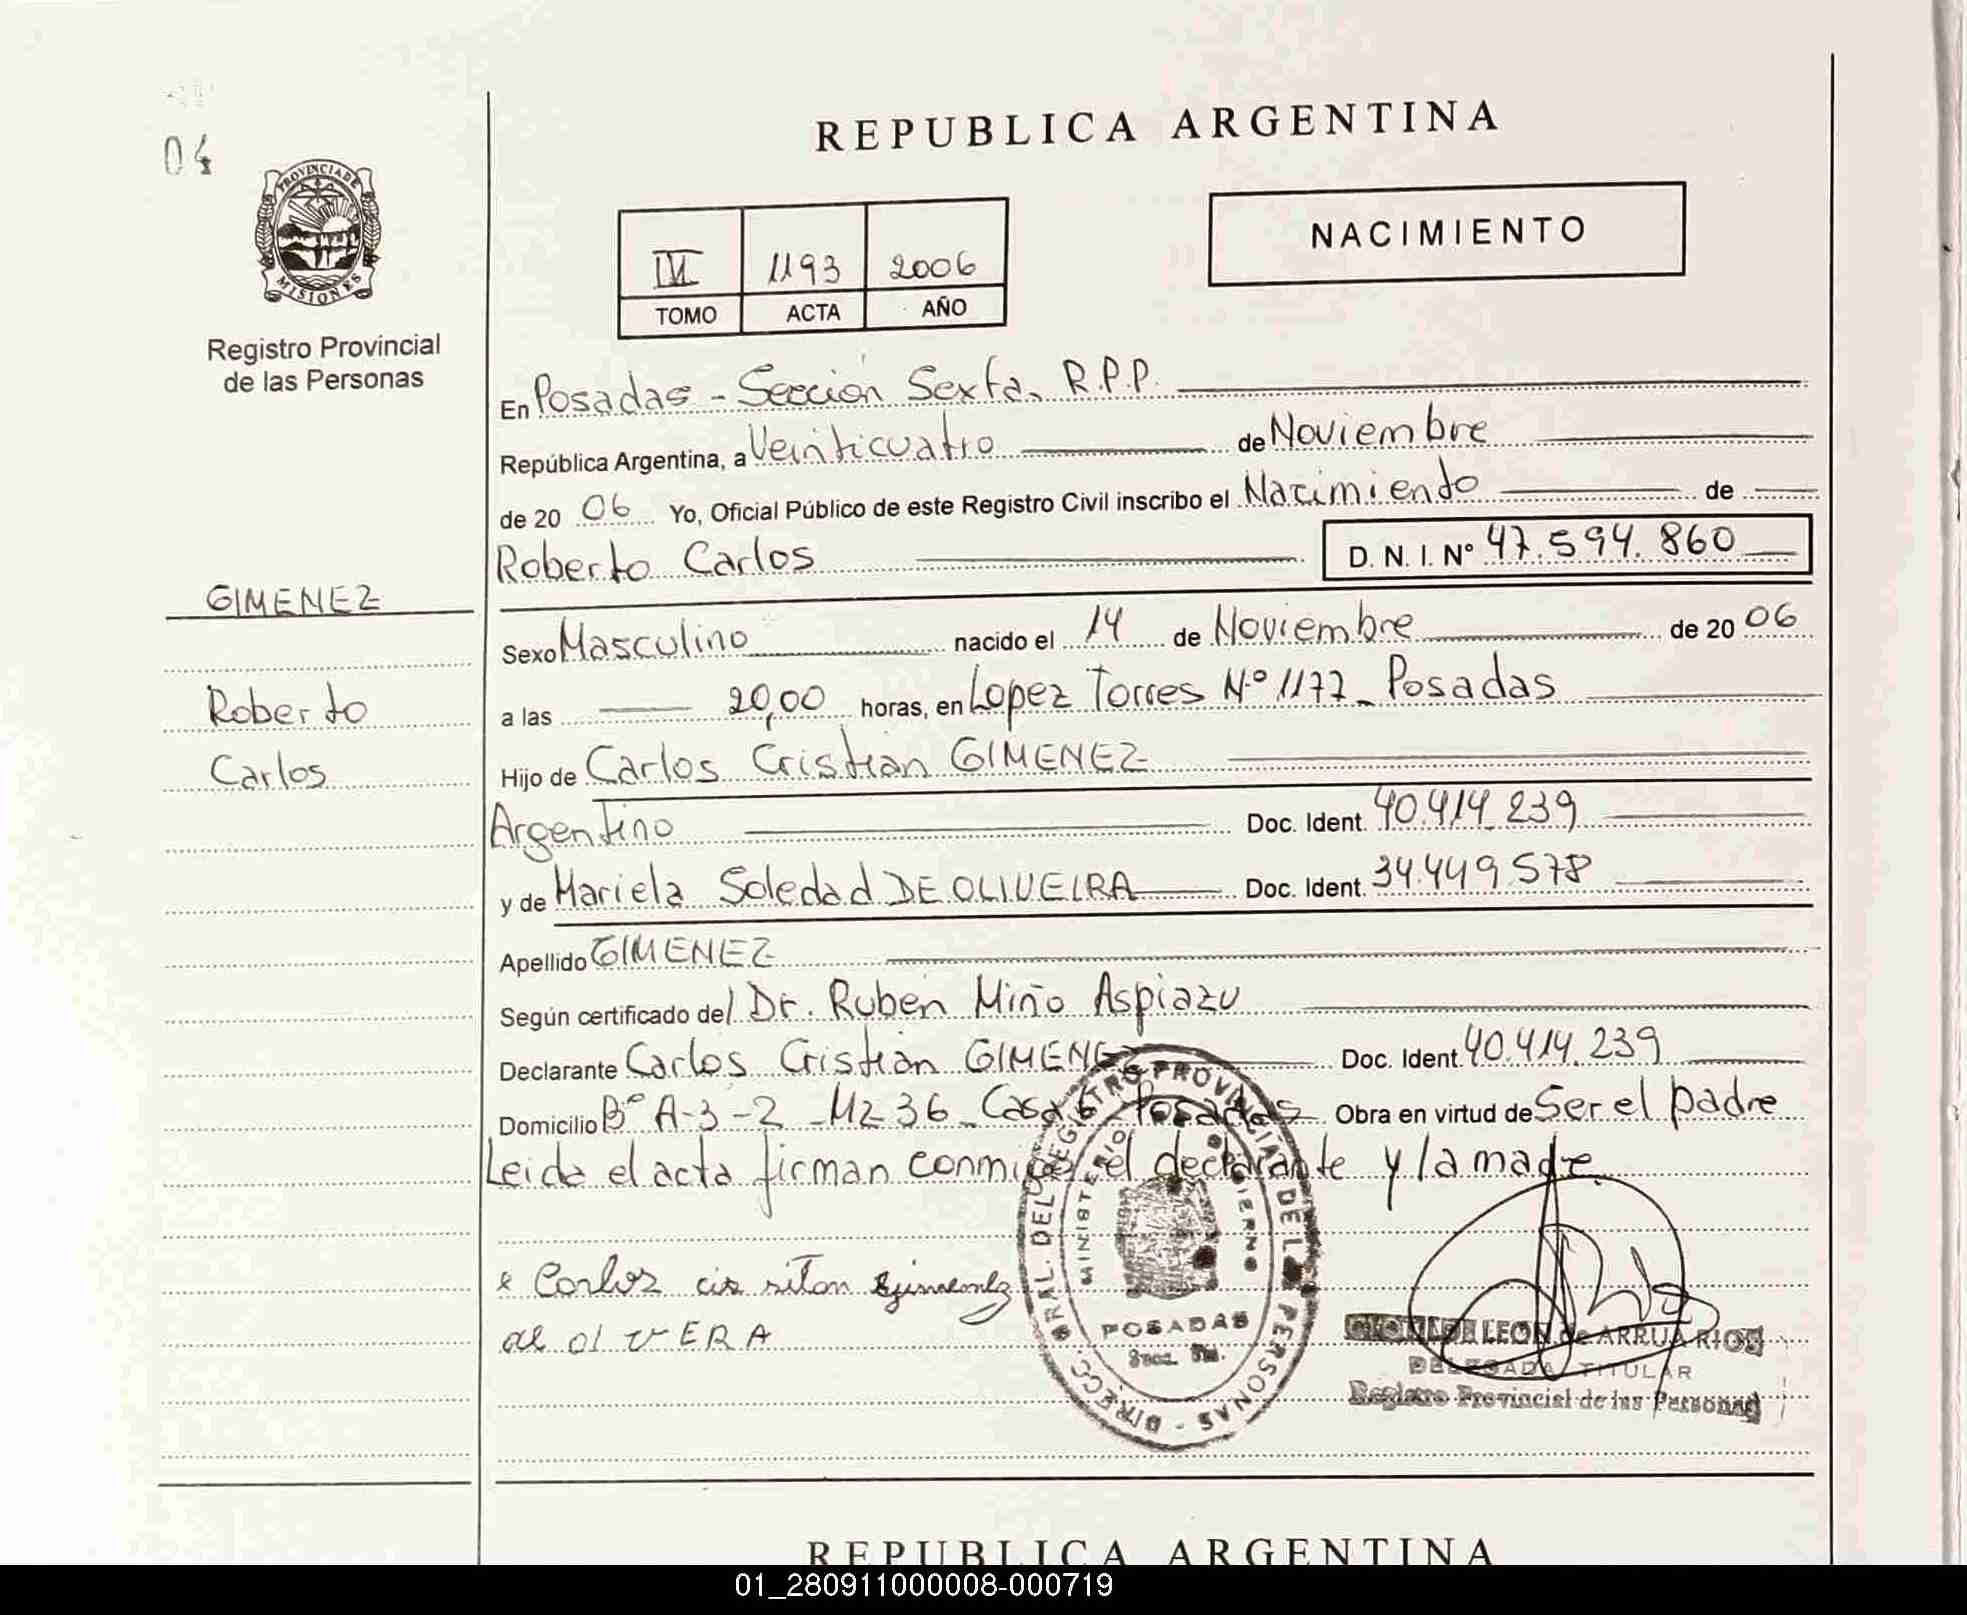 04
PROVINCIA DE
MISIONES
Registro Provincial
de las Personas
GIMENEZ
Roberto
Carlos
REPUBLICA ARGENTINA
NACIMIENTO
1193 2006
TOMO ACTA AÑO
En Posadas - Sección Sexta. R.P.P.
República Argentina, a Veinticuatro de Noviembre
de 20 06 Yo, Oficial Público de este Registro Civil inscribo el Nacimiento de
Roberto Carlos D. N. I. Nº 47.594.860
Sexo Masculino nacido el 14 de Noviembre de 20 06
a las 20,00 horas, en Lopez Torres Nº 1177 - Posadas
Hijo de Carlos Cristian GIMENEZ
Argentino Doc. Ident. 40.414.239
y de Mariela Soledad DE OLIVEIRA Doc. Ident. 34.449.578
Apellido GIMENEZ
Según certificado del Dr. Ruben Miño Aspiazu
Declarante Carlos Cristian GIMENEZ Doc. Ident. 40.414.239
Domicilio Bº A-3-2 - Mz 36 - Casa 6 - Posadas Obra en virtud de Ser el padre
Leida el acta firman conmigo el declarante y la madre.
Carlos cis sitan gimenez
de ol vERA
DIRECC. GRAL. DEL REGISTRO PROVINCIAL DE LAS PERSONAS
MINISTERIO GOBIERNO
POSADAS
LEON de ARRUA RIOS
DELEGADA TITULAR
Registro Provincial de las Personas
REPUBLICA ARGENTINA
01_280911000008-000719